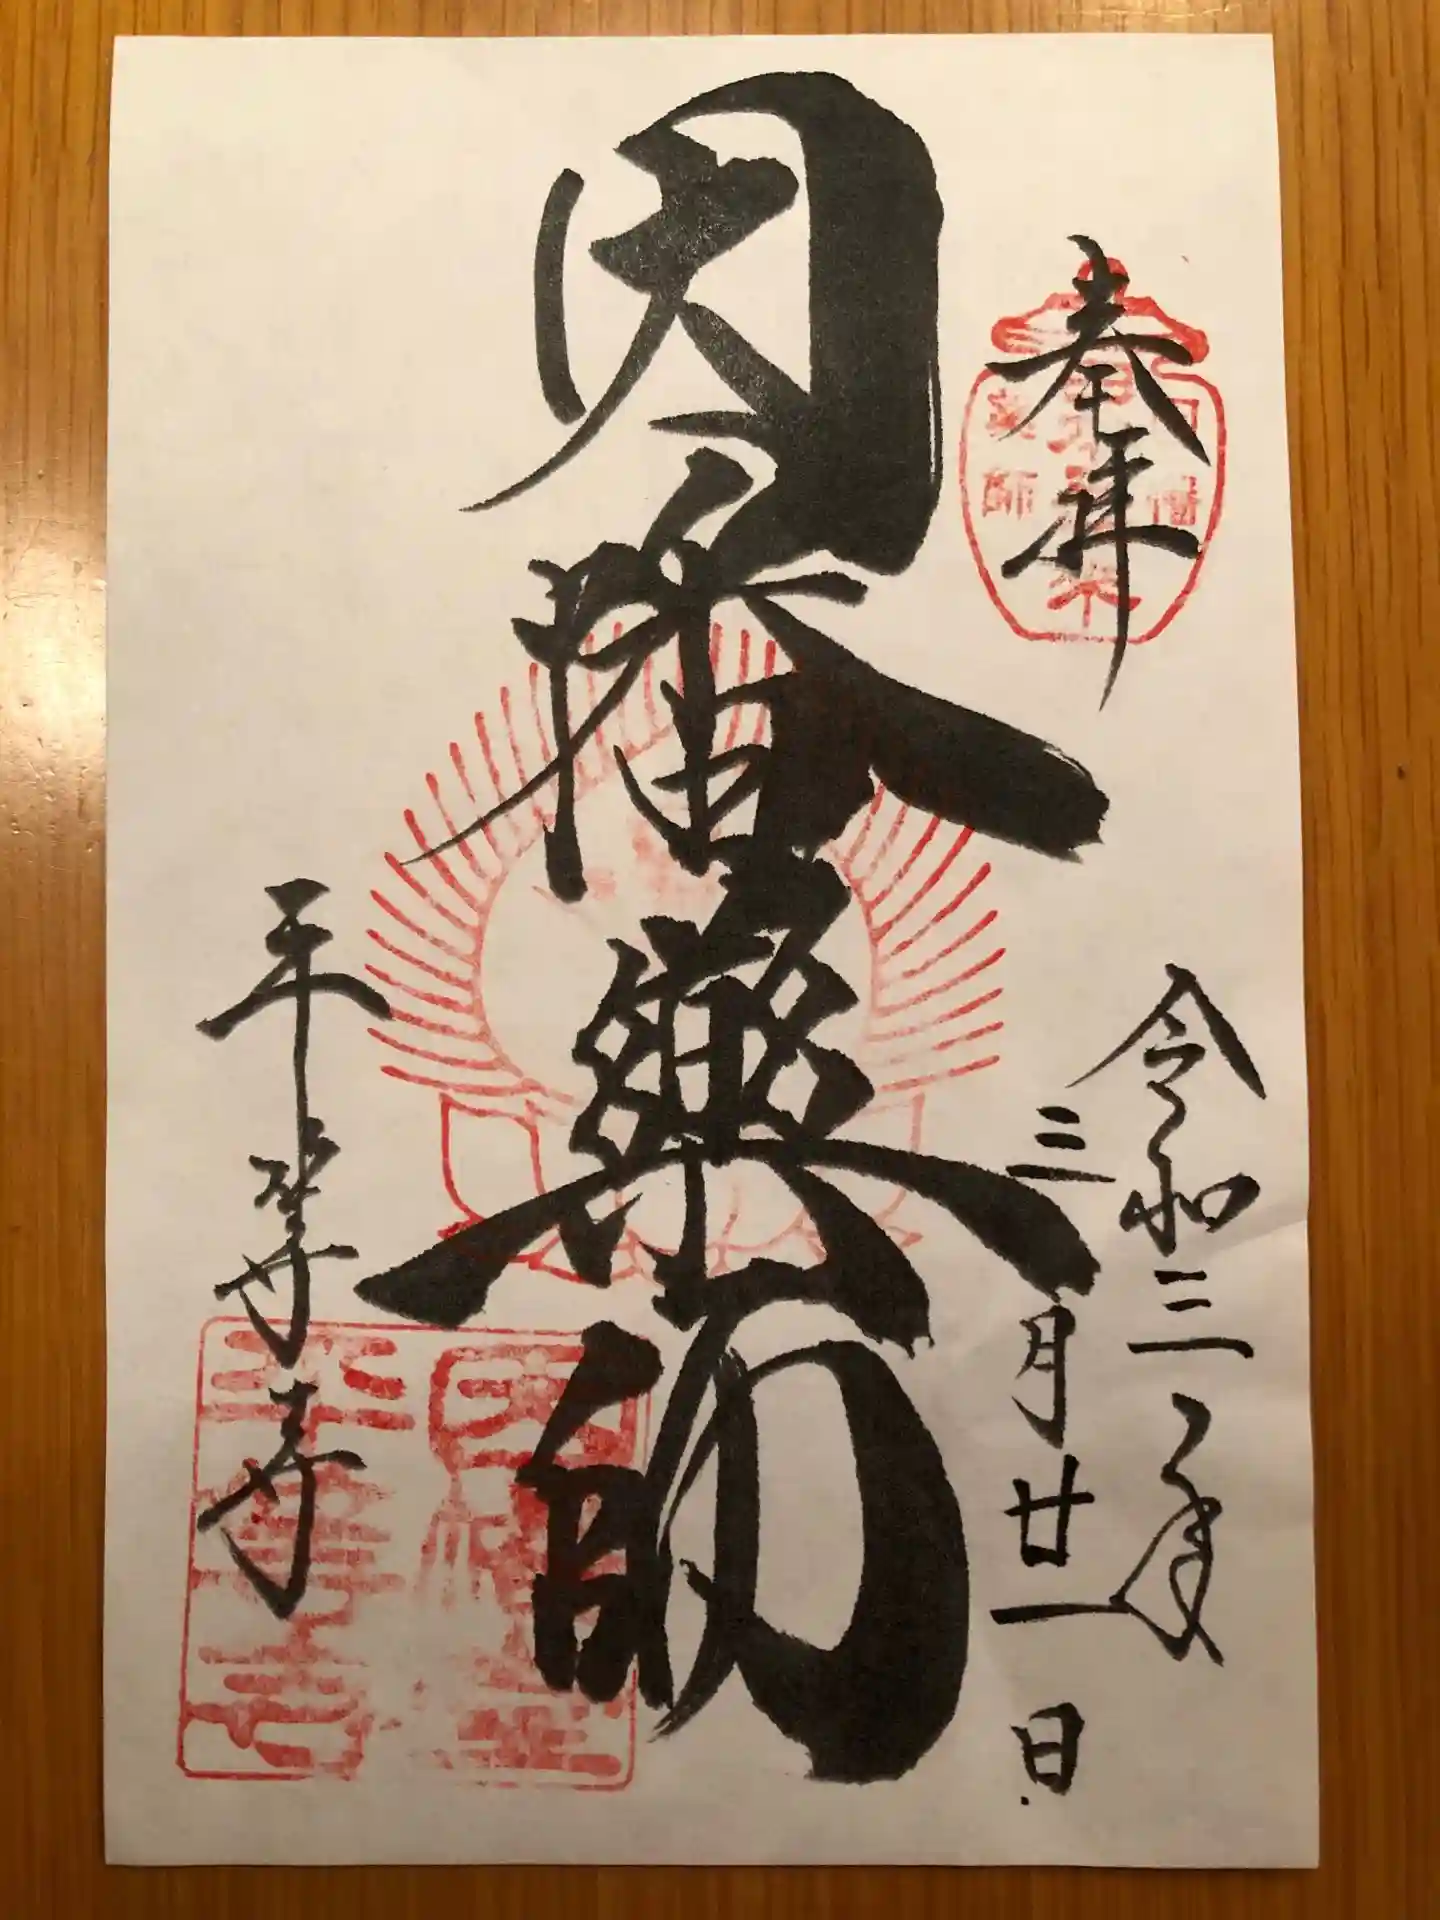 奉拝
令和三年
三月廿一日
因幡薬師
平等寺
因幡
薬師